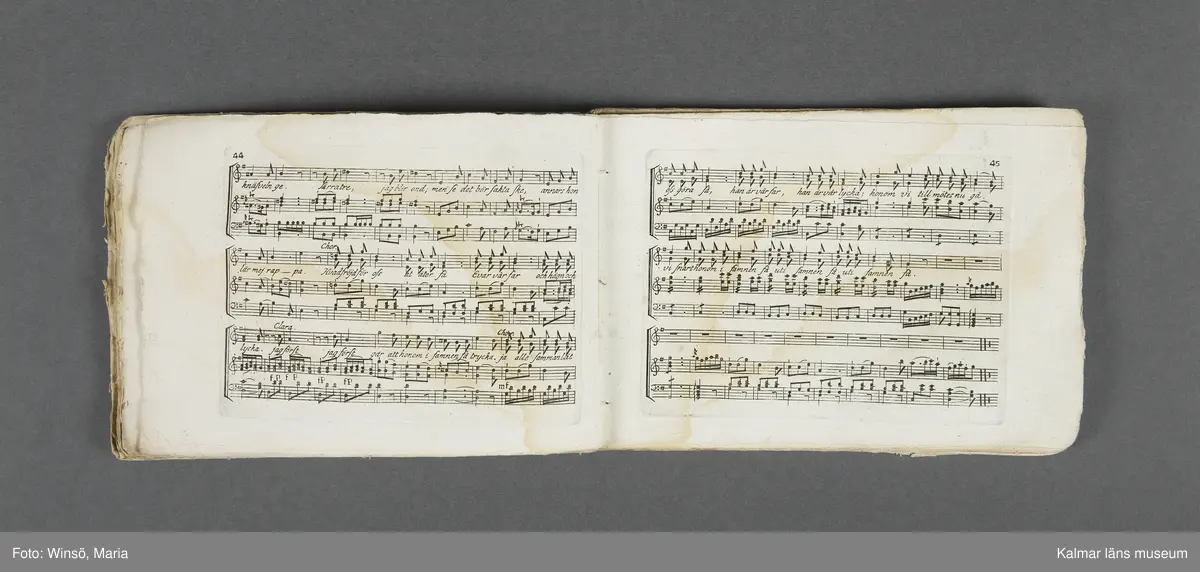 44
ge. Narratre, jag blir ond, men se det bör sakta ske, annars hon
Chor.
lär mej rap - pa. för oss vår far och
Clara. Chor.
lycka. jag först jag först går att honom i famnen få trycka. ja alle samman låt
fp fp fp fp mf
45
os göra så, han är vår far, han är vår lycka; honom vi till mötes nu gå
vi snart honom i famnen få uti famnen få uti famnen få.
Foto: Winsö, Maria
Kalmar läns museum